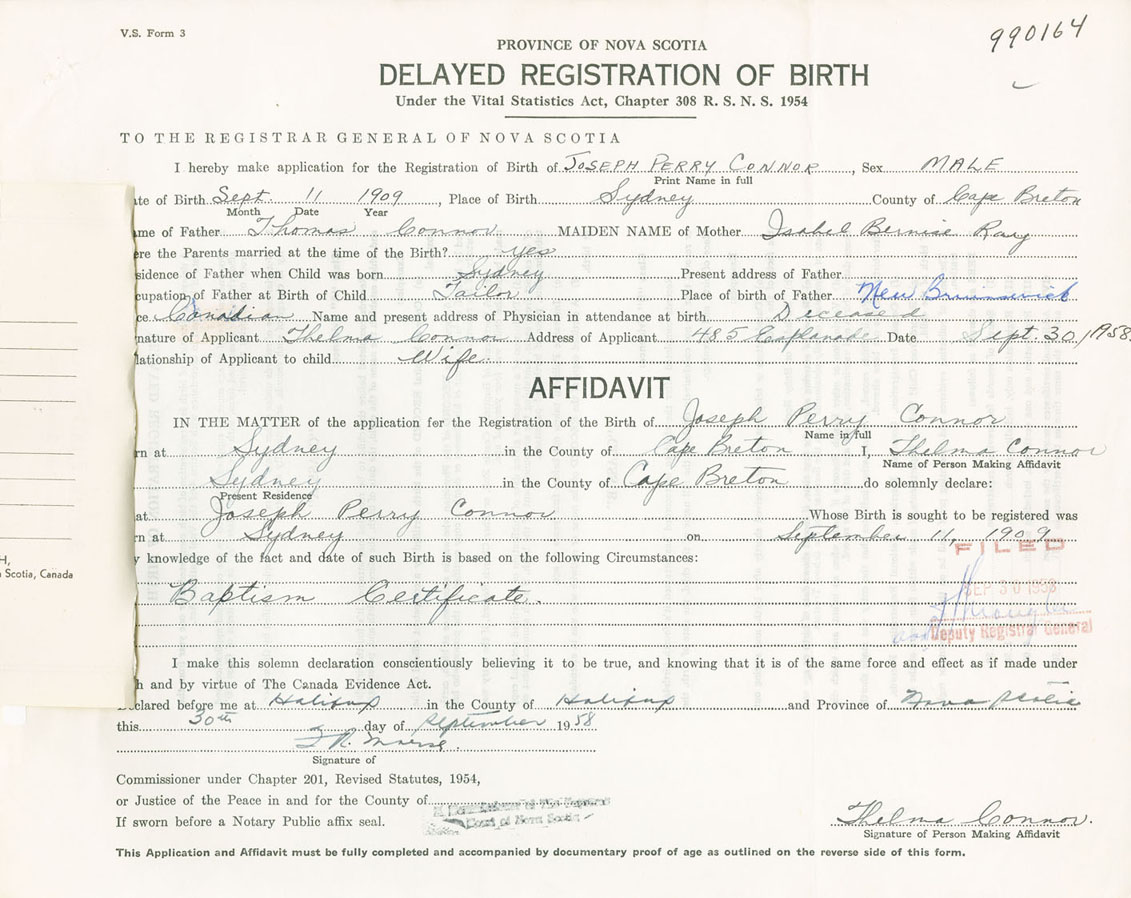 V.S. Form 3
990164
PROVINCE OF NOVA SCOTIA
DELAYED REGISTRATION OF BIRTH
Under the Vital Statistics Act, Chapter 308 R. S. N. S. 1954
TO THE REGISTRAR GENERAL OF NOVA SCOTIA
I hereby make application for the Registration of Birth of JOSEPH PERRY CONNOR, Sex MALE
Print Name in full
te of Birth Sept. 11 1909, Place of Birth Sydney County of Cape Breton
Month Date Year
me of Father Thomas Connor MAIDEN NAME of Mother Isabel Bernise Ray
ere the Parents married at the time of the Birth? yes
sidence of Father when Child was born Sydney Present address of Father
cupation of Father at Birth of Child Tailor Place of birth of Father New Brunswick
ce Canadian Name and present address of Physician in attendance at birth Deceased
nature of Applicant Thelma Connor Address of Applicant 485 Esplanade Date Sept. 30, 1958
lationship of Applicant to child Wife
AFFIDAVIT
IN THE MATTER of the application for the Registration of the Birth of Joseph Perry Connor
Name in full
rn at Sydney in the County of Cape Breton I, Thelma Connor
Name of Person Making Affidavit
Sydney in the County of Cape Breton do solemnly declare:
Present Residence
at Joseph Perry Connor Whose Birth is sought to be registered was
rn at Sydney on September 11, 1909
y knowledge of the fact and date of such Birth is based on the following Circumstances:
FILED
Baptism Certificate.
SEP 30 1958
Deputy Registrar General
H,
a Scotia, Canada
I make this solemn declaration conscientiously believing it to be true, and knowing that it is of the same force and effect as if made under
h and by virtue of The Canada Evidence Act.
clared before me at Halifax in the County of Halifax and Province of Nova Scotia
this 30th day of September 1958
Signature of
Commissioner under Chapter 201, Revised Statutes, 1954,
or Justice of the Peace in and for the County of
If sworn before a Notary Public affix seal.
Court of Nova Scotia
Thelma Connor.
Signature of Person Making Affidavit
This Application and Affidavit must be fully completed and accompanied by documentary proof of age as outlined on the reverse side of this form.